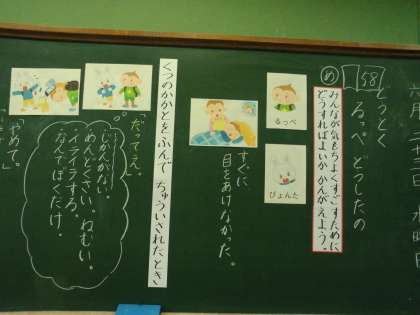 58
どうとく
るっぺ どうしたの
め
みんなが気もちよくすごすために
どうすればよいか かんがえよう。
るっぺ
ぴょんた
すぐに
目をあけなかった。
くつのかかとをふんで ちゅういされたとき
「だってえ。
じかんがない。
めんどくさい。ねむい。
イライラする。
なんでぼくだけ。
「やめて。」